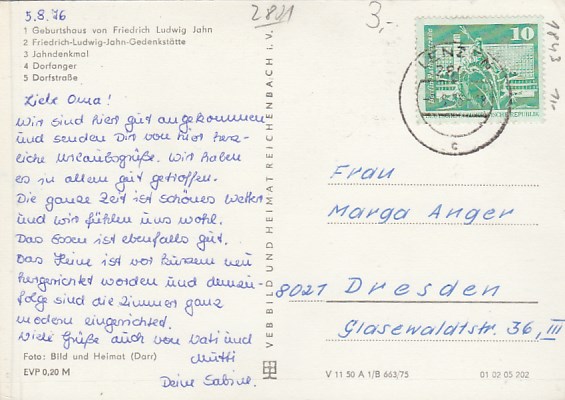 5.8.76
2881
3,-
1843
1 Geburtshaus von Friedrich Ludwig Jahn
2 Friedrich-Ludwig-Jahn-Gedenkstätte
3 Jahndenkmal
4 Dorfanger
5 Dorfstraße
Liebe Oma!
Wir sind hier gut angekommen
und senden Dir von hier herz-
liche Urlaubsgrüße. Wir haben
es in allem gut getroffen.
Die ganze Zeit ist schönes Wetter
und wir fühlen uns wohl.
Das Essen ist ebenfalls gut.
Das Heim ist vor kurzem neu
hergerichtet worden und demzu-
folge sind die Zimmer ganz
modern eingerichtet.
Viele Grüße auch von Vati und
Mutti
Deine Sabine.
Foto: Bild und Heimat (Darr)
EVP 0,20 M
VEB BILD UND HEIMAT REICHENBACH I. V.
10
C
Frau
Marga Anger
8021 Dresden
Glasewaldtstr. 36, III
V 11 50 A 1/B 663/75
01 02 05 202